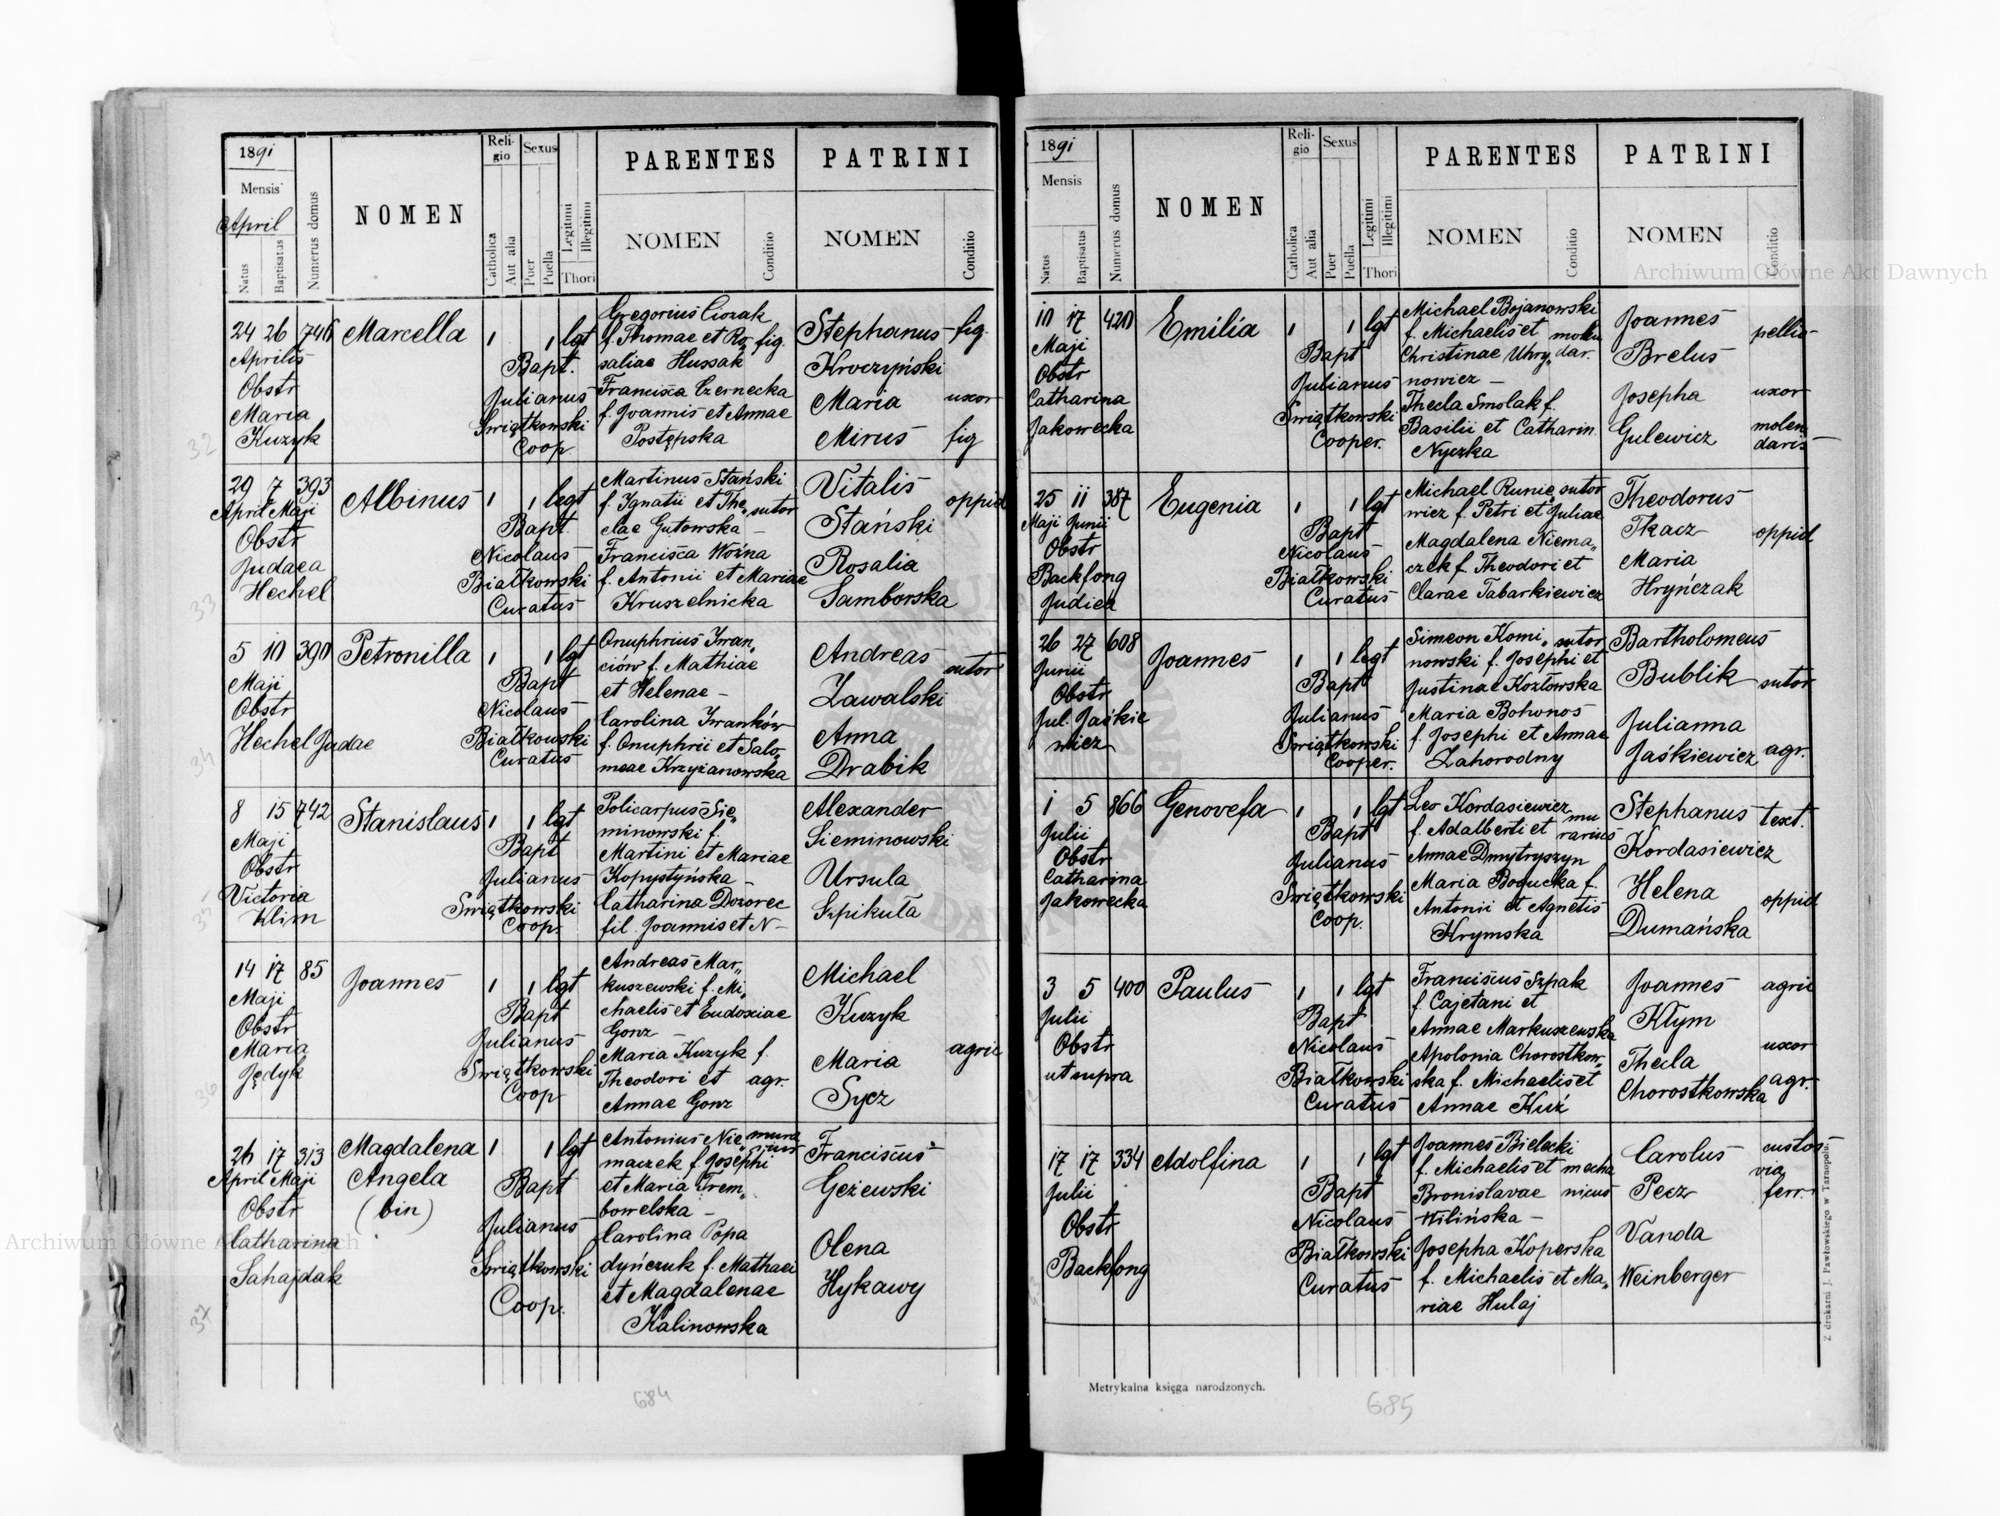 1891
Mensis
April
Natus
Baptisatus
Numerus domus
NOMEN
Religio
Catholica
Aut alia
Sexus
Puer
Puella
Legitimi
Illegitimi
Thori
PARENTES
NOMEN
Conditio
PATRINI
NOMEN
Conditio
24 26 746 Marcella 1 1 lgt
Aprilis
Obstr
Maria
Kuzyk
Bapt.
Julianus
Swiątkowski
Coop
Gregorius Ciozak
f. Thomae et Ro„ fig.
saliae Hussak
Francisca Czernecka
f. Joannis et Annae
Postępska
Stephanus fig.
Kroczyński
Maria uxor
Mirus fig
32
29 7 393 Albinus 1 1 legt
April Maji
Obstr
Judaea
Hechel
Bapt
Nicolaus
Białkowski
Curatus
Martinus Stański
f. Ignatii et The„ sutor
clae Gutowska —
Francisca Woźna
f. Antonii et Mariae
Kruszelnicka
Vitalis oppid
Stański
Rosalia
Samborska
33
5 10 390 Petronilla 1 1 lgt
Maji
Obstr
Hechel Judae
Bapt
Nicolaus
Białkowski
Curatus
Onuphrius Iwan„
ciów f. Mathiae
et Helenae —
Carolina Iwanków
f. Onuphrii et Salo„
meae Krzyżanowska
Andreas sutor
Zawalski
Anna
Drabik
34
8 15 742 Stanislaus 1 1 lgt
Maji
Obstr
Victoria
Klim
Bapt
Julianus
Swiątkowski
Coop.
Policarpus Sie„
minowski f.
Martini et Mariae
Kopystyńska —
Catharina Dozorec
fil. Joannis et N —
Alexander
Sieminowski
Ursula
Szpikuła
35
14 17 85 Joannes 1 1 lgt
Maji
Obstr
Maria
Jędyk
Bapt
Julianus
Swiątkowski
Coop
Andreas Mar„
kuszewski f. Mi„
chaelis et Eudoxiae
Gonz —
Maria Kuzyk f.
Theodori et agr.
Annae Gonz
Michael
Kuzyk
Maria agric
Sycz
36
26 17 313 Magdalena 1 1 lgt
April Maji Angela
(bin)
Obstr
Catharina
Sahajdak
Bapt
Julianus
Swiątkowski
Coop.
Antonius Nie„ mura
maczek f. Josephi rius
et Maria Trem„
bowelska —
Carolina Popa
dyńczuk f. Mathaei
et Magdalenae
Kalinowska
Franciscus
Geżewski
Olena
Hykawy
37
684
1891
Mensis
Natus
Baptisatus
Numerus domus
NOMEN
Religio
Catholica
Aut alia
Sexus
Puer
Puella
Legitimi
Illegitimi
Thori
PARENTES
NOMEN
Conditio
PATRINI
NOMEN
Conditio
10 17 420 Emilia 1 1 lgt
Maji
Obstr
Catharina
Jakowecka
Bapt
Julianus
Swiątkowski
Cooper.
Michael Bojanowski
f. Michaelis et molen
Christinae Uhry„ dar.
nowicz —
Thecla Smolak f.
Basilii et Catharin
Nyczka
Joannes pellio
Brelus
Josepha uxor
Gulewicz molen
daris
25 11 387 Eugenia 1 1 lgt
Maji Junii
Obstr
Backfong
Judica
Bapt
Nicolaus
Białkowski
Curatus
Michael Runie„ sutor
wicz f. Petri et Juliae
Magdalena Niema„
czek f. Theodori et
Clarae Tabarkiewicz
Theodorus
Tkacz oppid
Maria
Hryńczak
26 27 608 Joannes 1 1 legt
Junii
Obstr
Jul. Jaśkie
wicz
Bapt
Julianus
Swiątkowski
Cooper.
Simeon Komi„ sutor
nowski f. Josephi et
Justinae Kozłowska
Maria Bohonos
f. Josephi et Annae
Zahorodny
Bartholomeus
Bublik sutor
Julianna
Jaśkiewicz agr.
1 5 866 Genovefa 1 1 lgt
Julii
Obstr
Catharina
Jakowecka
Bapt
Julianus
Swiątkowski
Coop.
Leo Kordasiewicz mu
f. Adalberti et rarius
Annae Dmytryszyn
Maria Bogucka f.
Antonii et Agnetis
Krymska
Stephanus text.
Kordasiewicz
Helena oppid
Dumańska
3 5 400 Paulus 1 1 lgt
Julii
Obstr
ut supra
Bapt
Nicolaus
Białkowski
Curatus
Franciscus Szpak
f. Cajetani et
Annae Markuszewska
Apolonia Chorostkow„
ska f. Michaelis et
Annae Kuź
Joannes agric
Kłym
Thecla uxor
Chorostkowska agr.
17 17 334 Adolfina 1 1 lgt
Julii
Obstr
Backfong
Bapt
Nicolaus
Białkowski
Curatus
Joannes Bielecki
f. Michaelis et mecha
Bronislavae nicus
Wilińska —
Josepha Koperska
f. Michaelis et Ma„
riae Hulaj
Carolus custos
Pecz via
ferr.
Vanda
Weinberger
Metrykalna księga narodzonych.
Z drukarni J. Pawłowskiego w Tarnopolu.
685
Archiwum Główne Akt Dawnych
Archiwum Główne Akt Dawnych